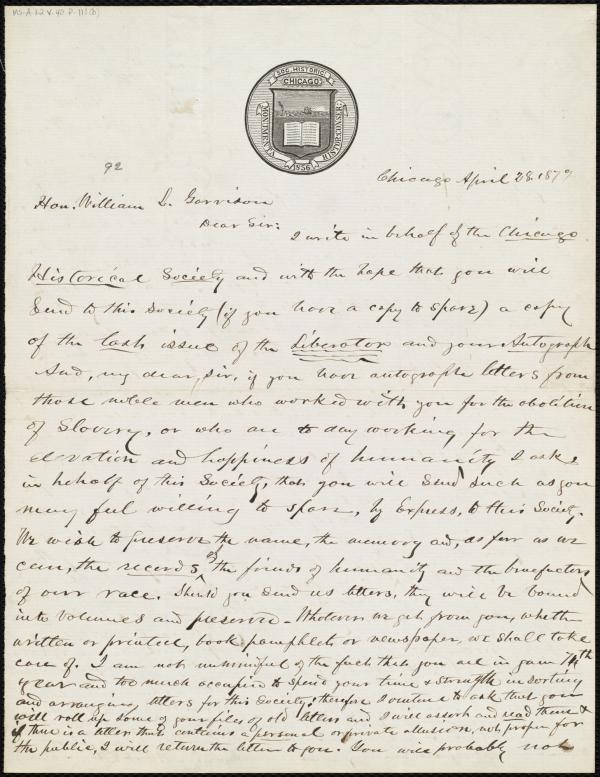 MS.A.1.2 v.40 p.11(b)
SOC. HISTORICI
CHICAGO
MONUMENTA
HISTORICONSER
1856
92
Chicago April 28. 1879
Hon. William L. Garrison
Dear Sir:
I write in behalf of the Chicago
Historical Society and with the hope that you will
send to this Society (if you have a copy to spare) a copy
of the last issue of the Liberator and your Autograph
And, my dear, sir, if you have autograph letters from
those noble men who worked with you for the abolition
of Slavery, or who are to day working for the
elevation and happiness of humanity I ask
in behalf of this Society, that you will send such as you
may feel willing to spare, by Express, to this Society.
We wish to preserve the name, the memory and, as far as we
can, the records of the friends of humanity and the benefactors
of our race. Should you send us letters, they will be bound
into volumes and preserved - Whatever we get from you, whether
written or printed, book pamphlets or newspaper, we shall take
care of. I am not unmindful of the fact that you are in your 74th
year and too much occupied to spend your time & strength in sorting
and arranging letters for this Society, therefore I venture to ask that you
will roll up some of your files of old letters and I will assort and read them &
if there is a letter that contains a personal or private allusion, not proper for
the public, I will return the letter to you. You will probably not